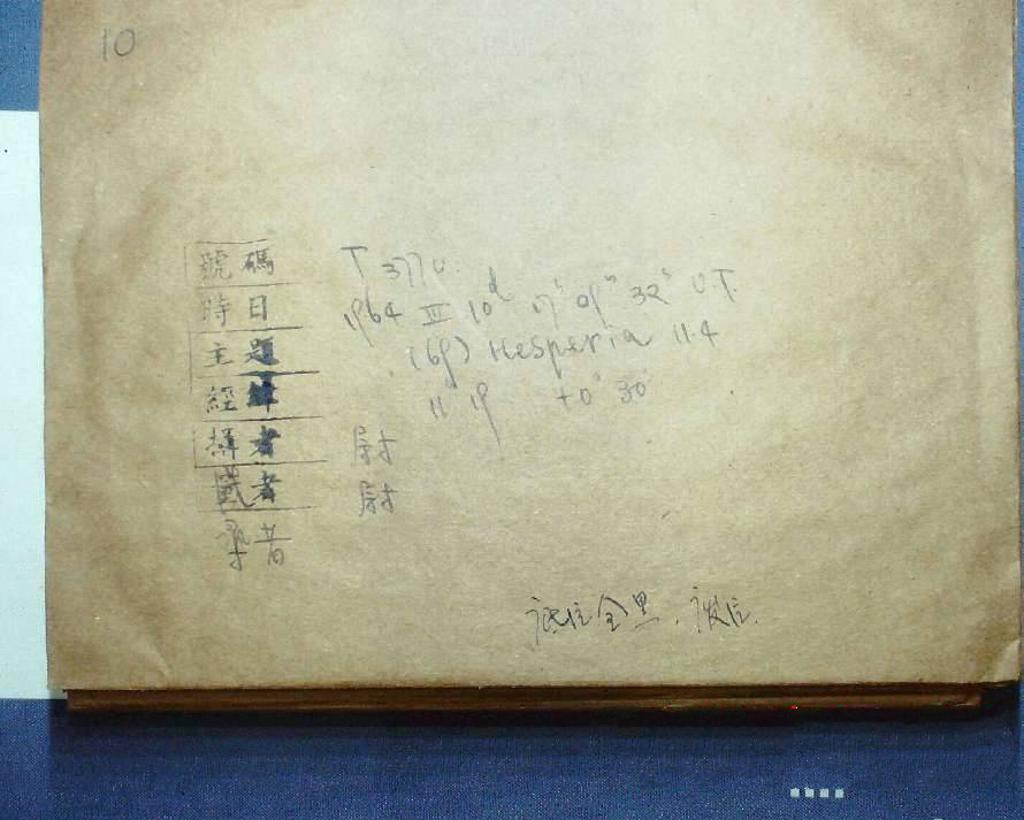 10
號碼 T 3770
時日 1964 III 10ᵈ 17ʰ 09ᵐ 32ˢ U.T.
主題 (69) Hesperia 11.4
經緯 11ʰ 19 +0° 30'
攝者 尉
者 尉
者
全黑.